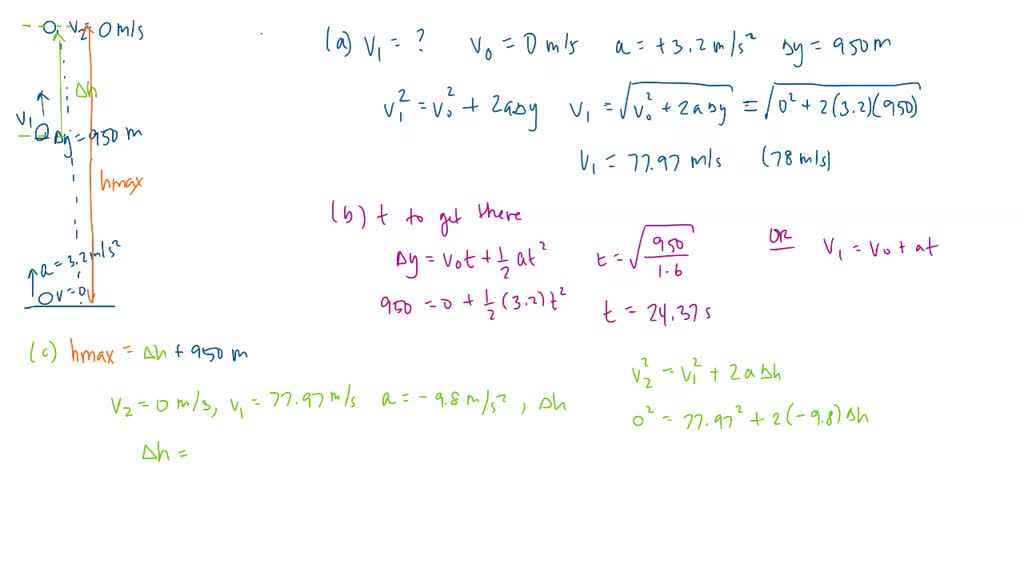 V₂ = 0 m/s
Δh
V₁
Δy = 950 m
hmax
a = 3.2 m/s²
V = 0
(a) V₁ = ? V₀ = 0 m/s a = +3.2 m/s² Δy = 950 m
V₁² = V₀² + 2aΔy V₁ = √(V₀² + 2aΔy) = √(0² + 2(3.2)(950))
V₁ = 77.97 m/s (78 m/s)
(b) t to get there
Δy = V₀t + ½ at² t = √(950/1.6) OR V₁ = V₀ + at
950 = 0 + ½ (3.2)t² t = 24.37 s
(c) hmax = Δh + 950 m
V₂ = 0 m/s, V₁ = 77.97 m/s a = -9.8 m/s², Δh
Δh =
V₂² = V₁² + 2aΔh
0² = 77.97² + 2(-9.8)Δh